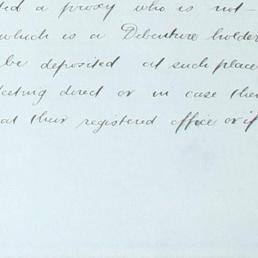 ted a proxy who is not -
which is a Debenture holder
be deposited at such place
leeting direct or in case ther
at their registered office or if